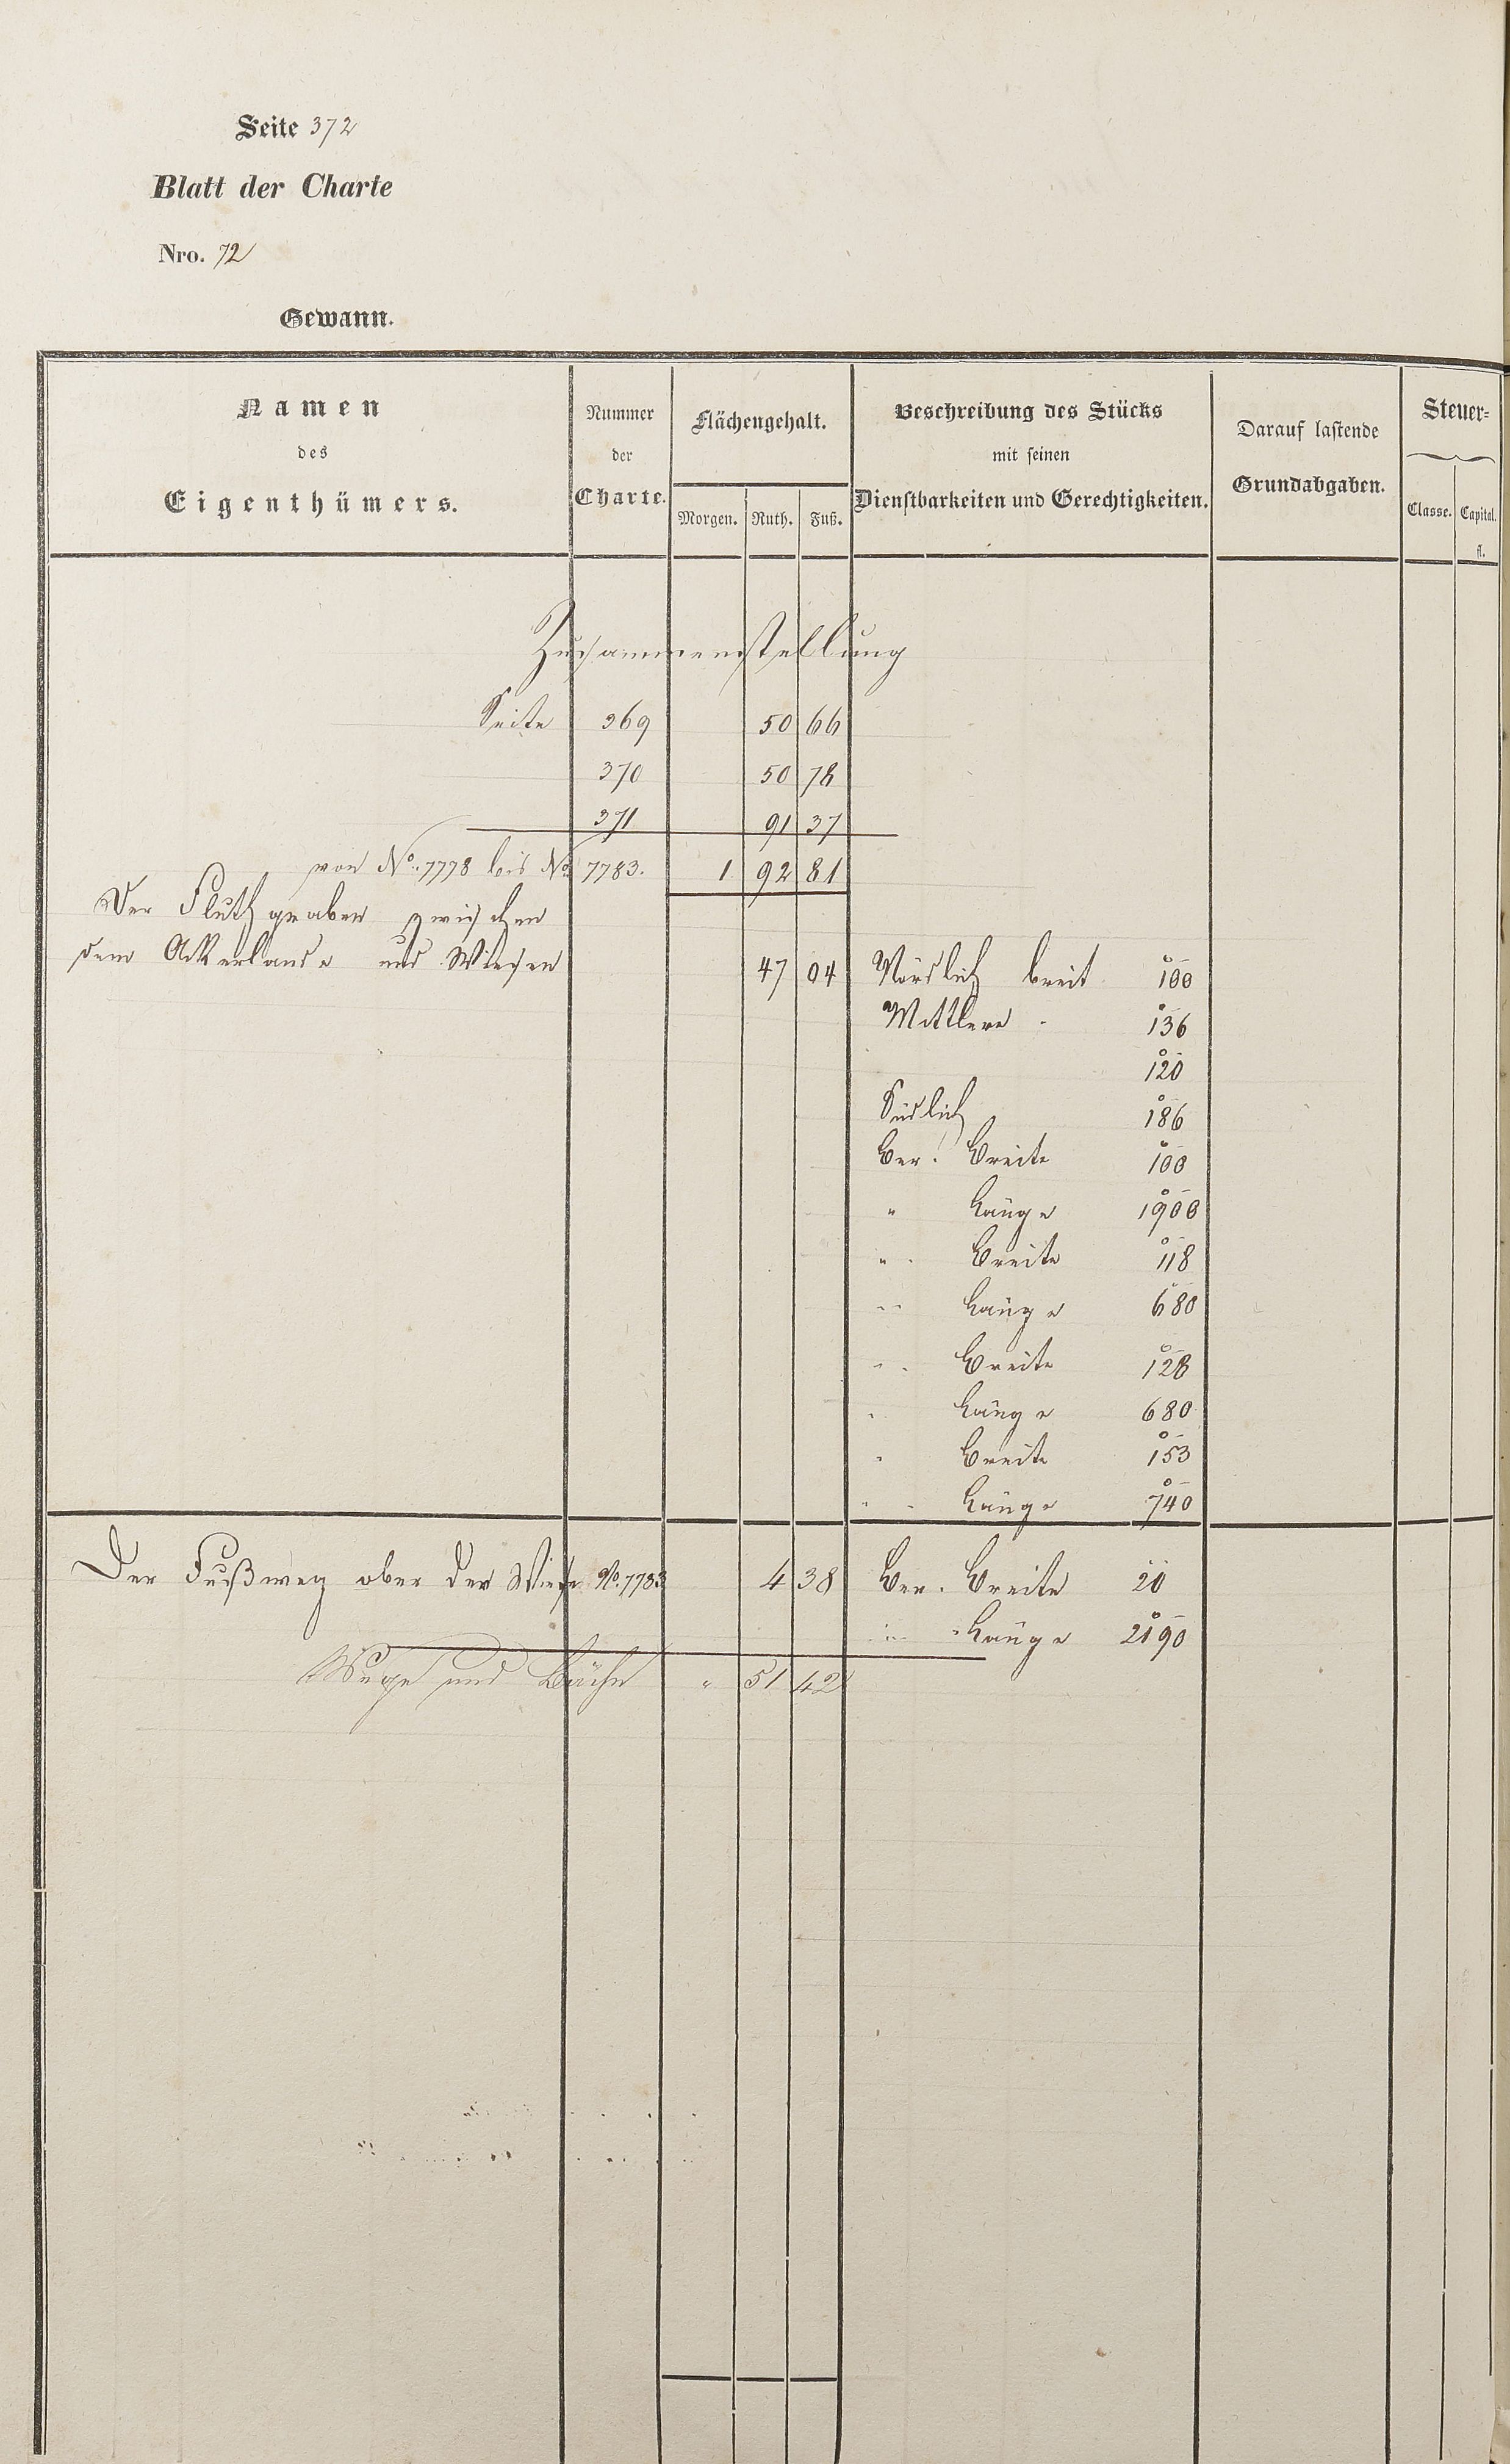 Seite 372
Blatt der Charte
Nro. 72
Gewann.
Namen des Eigenthümers.
Nummer der Charte.
Flächengehalt.
Morgen. Ruth. Fuß.
Beschreibung des Stücks mit seinen Dienstbarkeiten und Gerechtigkeiten.
Darauf lastende Grundabgaben.
Steuer-
Classe. Capital.
fl.
Zusammenstellung
Seite 369 50 66
370 50 78
371 91 37
von No. 7778 bis No. 7783. 1 92 81
Der Fluthgraben zwischen
dem Ackerlande und Wiesen 47 04 Nördlich breit 100
Mittlere 136
120
Südlich 186
Ber. Breite 100
" Länge 1900
" Breite 118
" Länge 680
" Breite 128
" Länge 680
" Breite 153
" Länge 740
Der Fußweg ober der Wiese No. 7783 4 38 Ber. Breite 20
" Länge 2190
Wege und Bäche " 51 42